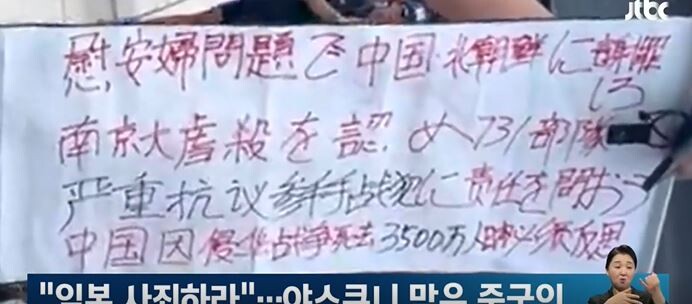 jtbc
慰安婦問題で中国・北朝鮮に謝罪
しろ
南京大虐殺を認め731部隊
严重抗议参拜战犯に責任を問おう
中国因侵华战争死去3500万人日本必须反思
"일본 사죄하라"…야스쿠니 막은 중국인